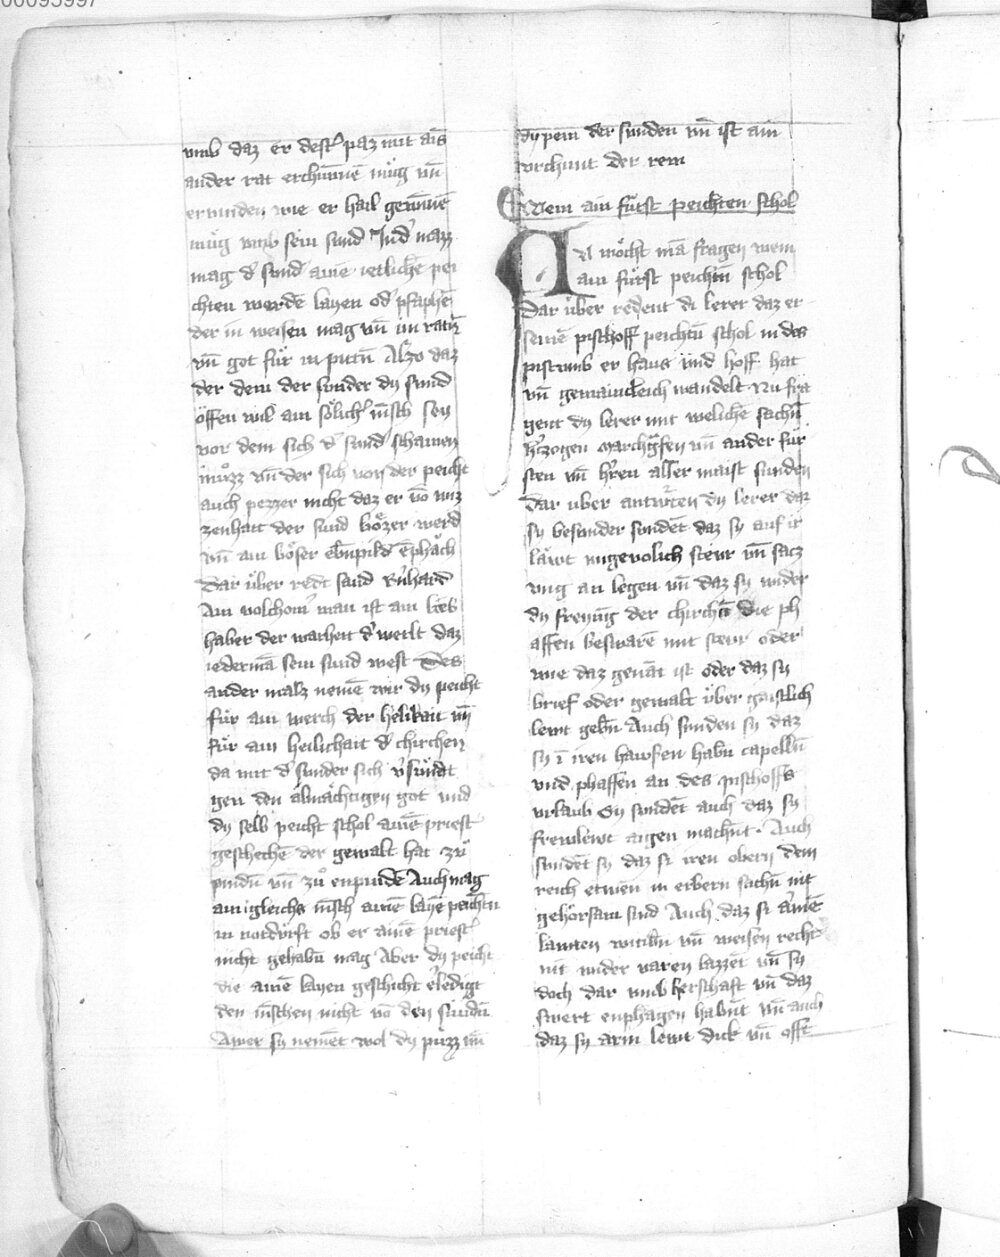 00095997
vmb daz er dest paz mit ains
ander rat erchünnē müg vn̄
ervinden wie er hail gewinnē
müg vmb sein sund In d mazz
mag d sund ainē ietlichē pei
chten werdē layen od pfaphē
der in weisen mag vn̄ im ratn̄
vn̄ got für in pittn̄ Alzo daz
der dem der sunder dy sund
öffen wil ain sölich mēsch sey
vor dem sich d sund schamen
müzz vn̄ der sich von der peicht
auch pezzer nicht daz er vō wiz
zenhait der sund bözer werd
vn̄ ain böser ebnpild ēphach
Dar über redt sand
Ain volchom man ist ain lieb
haber der warheit d weilt daz
iedermā sein sund west Des
ander malz nemē wir dy peicht
für ain werch der helikait vn̄
für ain heilichait d chirchen
da mit d sunder sich vsündt
gen den almächtigen got vnd
dy selb peicht schol ainē priest
geschechē der gewalt hat zu
pindn̄ vn̄ zu enpindē Auch mag
ain igleichs mēsch ainē layē peichtn
in notdürft ob er ainē priest
nicht gehabn̄ mag Aber dy peicht
die ainē layen geschicht eledigt
den mēschen nicht vō den sundn̄
Awer sy nemēt wol dy puzz vn̄
dy pein der sunden vn̄ ist ain
vrchunt der rew
Wem ain fürst peichten schol
Nu möcht mā fragen wem
ain fürst peichtn̄ schol
Dar über redent di lerer daz er
seinē pischoff peichtn̄ schol in des
pistumb er haus vnd hoff hat
vn̄ gemaincleich wandelt Nu fra
gent dy lerer mit welichē sachn̄
hzogen marchgfen vn̄ ander für
sten vn̄ hren aller maist sunden
Dar über antwrten dy lerer daz
sy besunder sundēt daz sy auf ir
läwt vngewolich stewr vn̄ sacz
vng an legen vn̄ daz sy wider
dy freyūg der chirchn̄ die ph
affen beswarē mit stewr oder
wie daz genāt ist oder daz sy
brief oder gewalt über gaistlich
lewt gebn̄ Auch sunden sy daz
sy ī iren hawsen habn̄ capelln̄
vnd phaffen an des pischoffs
vrlaub Sy sundēt auch daz sy
freylewt aigen machn̄t Auch
sundēt sy daz si iren obern dem
reich etwen in erbern sachn̄ nit
gehörsam sind Auch daz si armē
läwten witibn̄ vn̄ weisen recht
nit wider varen lazzēt vn̄ sy
doch dar vmb herschaft vn̄ daz
swert enphagen habn̄t vn̄ auch
daz sy arm lewt dick vn̄ offt